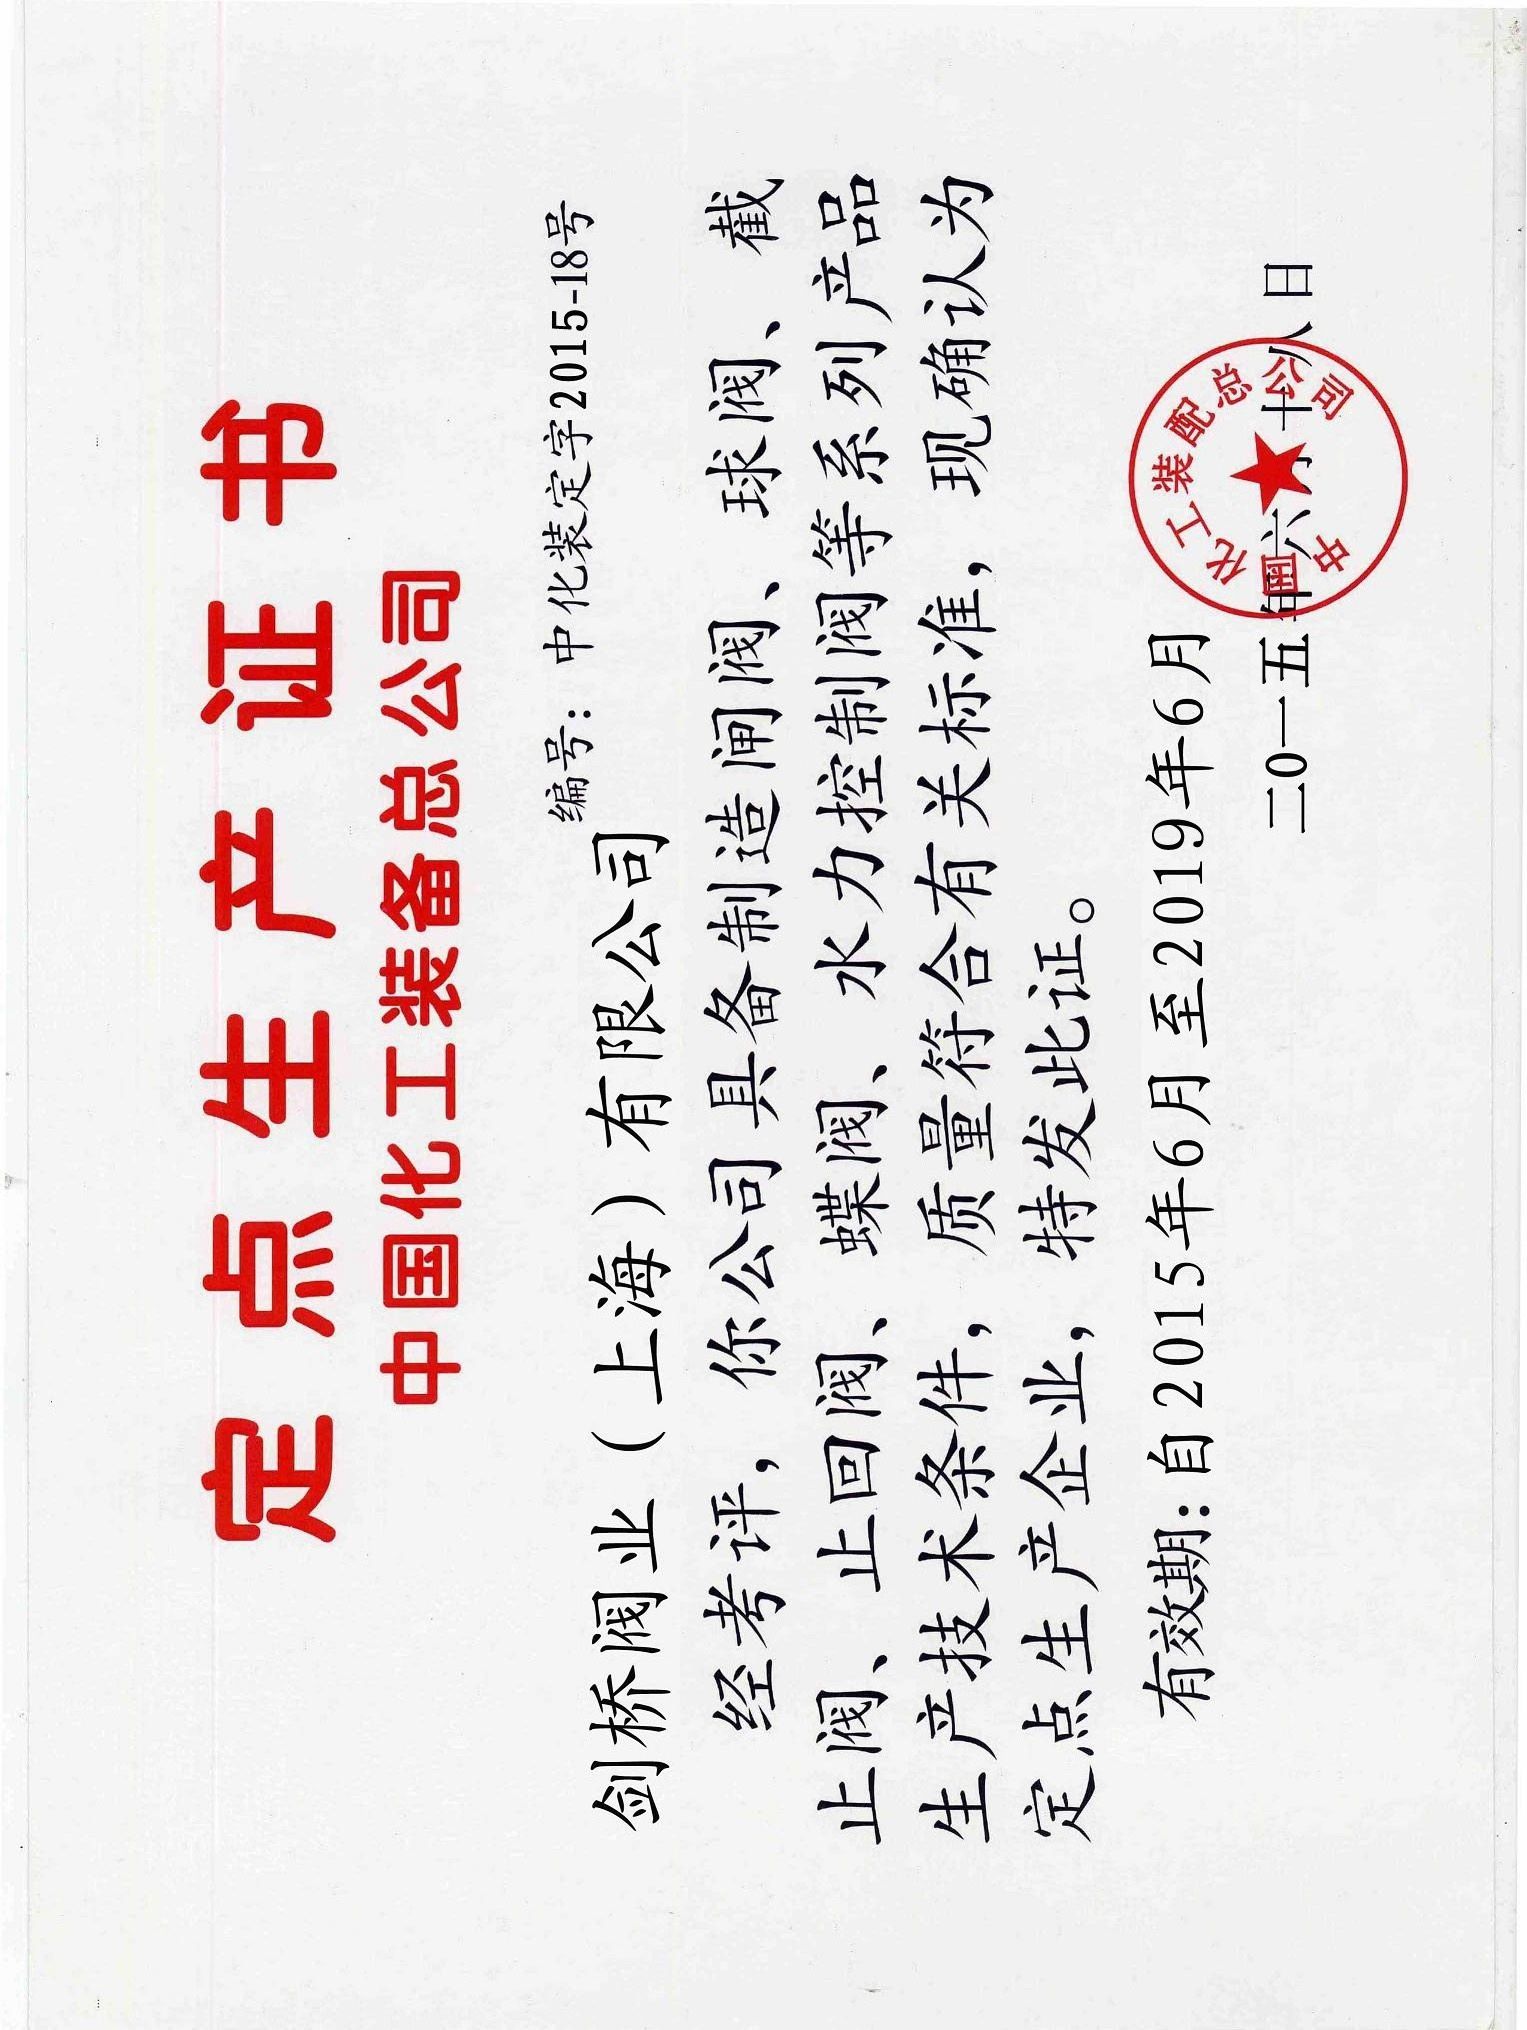 定点生产证书
中国化工装备总公司
编号：中化装定字2015-18号
剑桥阀业（上海）有限公司
经考评，你公司具备制造闸阀、球阀、截
止阀、止回阀、蝶阀、水力控制阀等系列产品
生产技术条件，质量符合有关标准，现确认为
定点生产企业，特发此证。
有效期：自2015年6月至2019年6月
二0一五年六月十八日
中国化工装配总公司